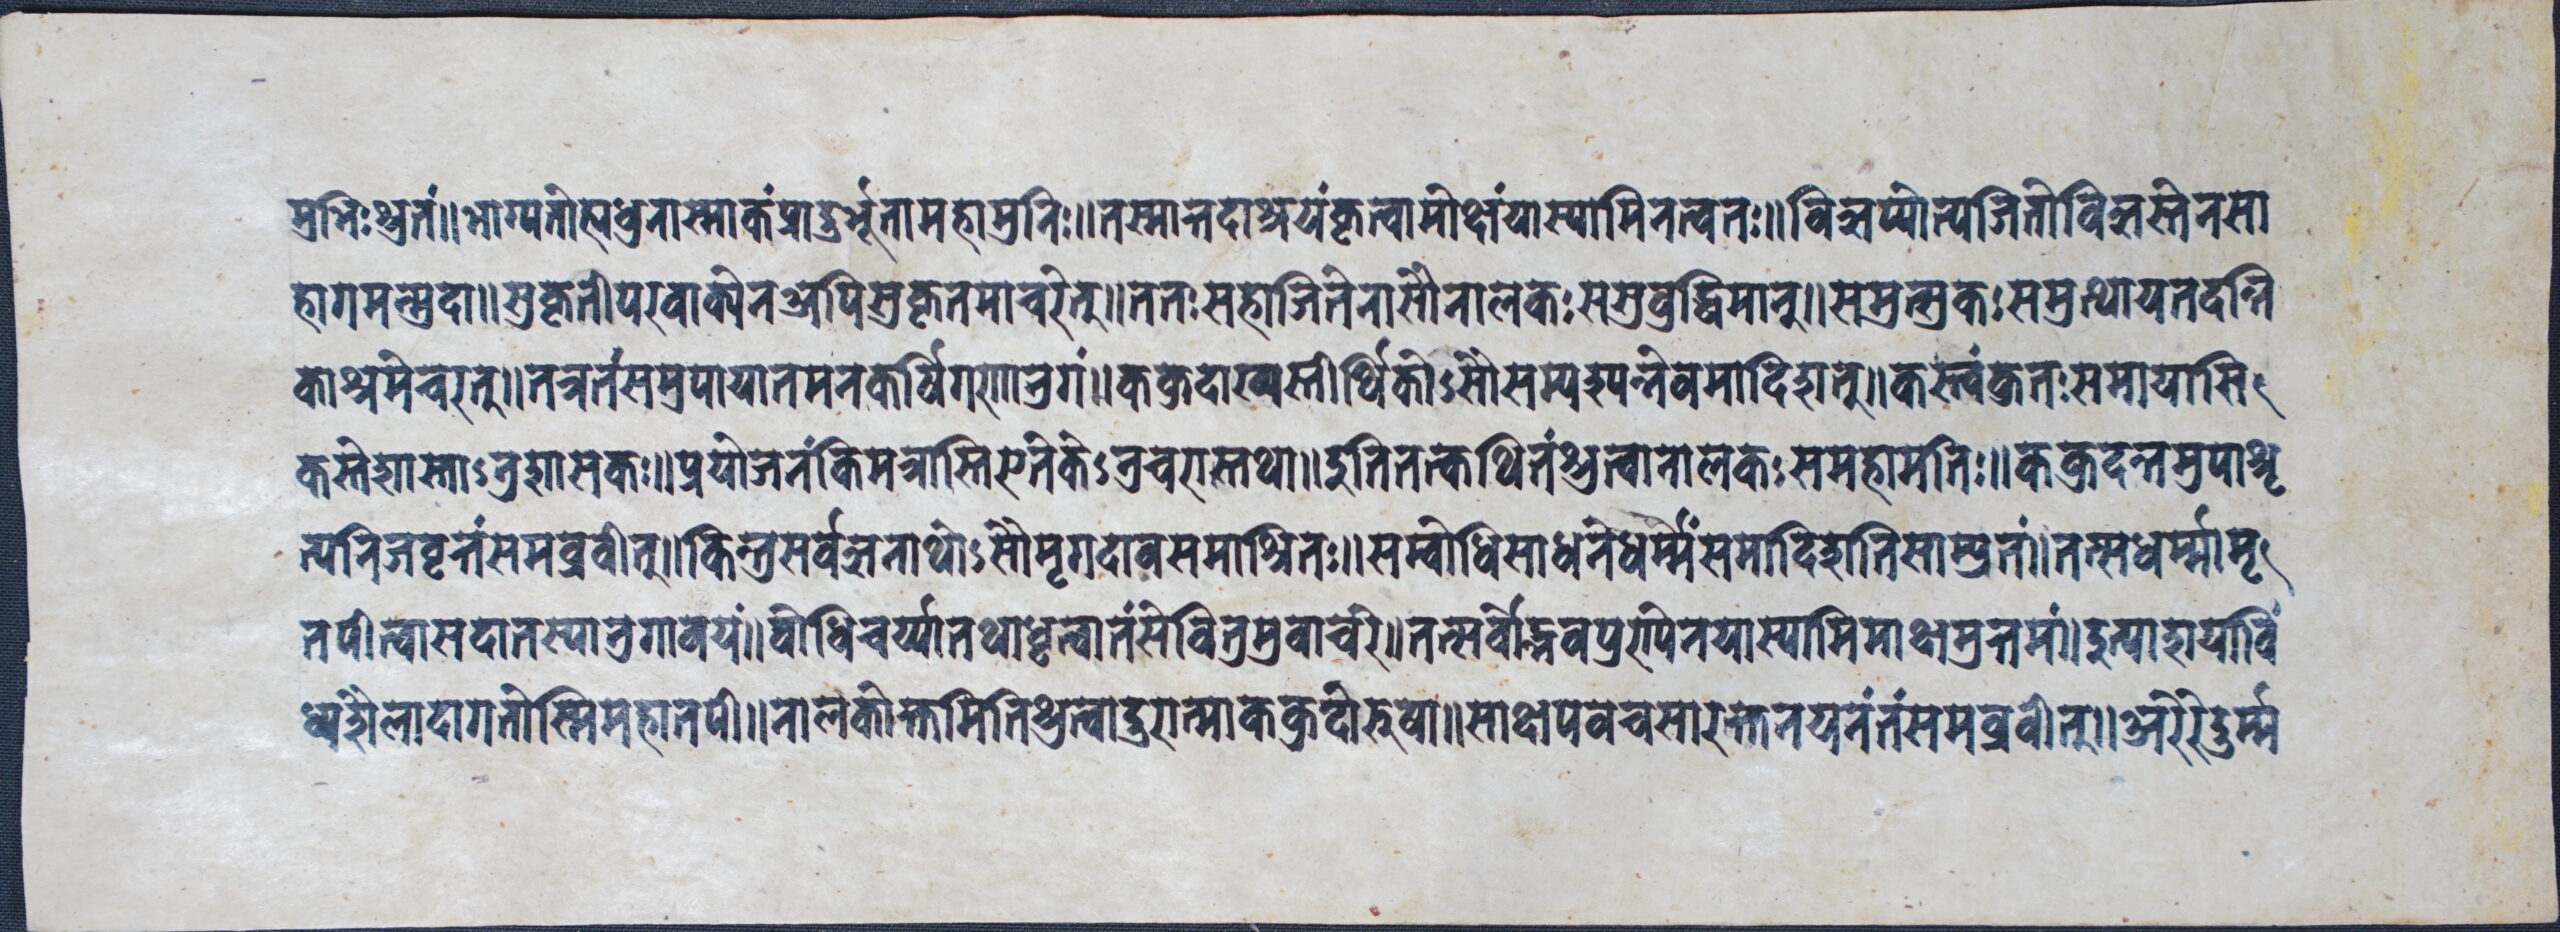 मुनिःश्रुतं॥भाग्यतोह्यधुनास्माकंप्रादुर्भूतामहामुनिः॥तस्मात्तदाश्रयंकृत्वामोक्षंयास्यामितत्त्वतः॥विज्ञप्योत्यजितोविज्ञस्तेनसा
हागमन्मुदा॥सुकृतीपरवाक्येनअपिसुकृतमाचरेत्॥ततःसहाजितेनासौनालकःससुबुद्धिमान्॥समुन्मुकःसमुत्थायतदन्ति
काश्रमेचरत्॥तत्रतंसमुपायातमनेकर्षिगणानुगं॥ककुदाख्यस्तीर्थिकोऽसौसम्पश्यन्नेवमादिशत्॥कस्त्वंकुतःसमायासि
कस्तेशास्ताऽनुशासकः॥प्रयोजनंकिमत्रास्तिएतेकेऽनुचरास्तथा॥इतितत्कथितंश्रुत्वानालकःसमहामतिः॥ककुदन्तमुपाश्रृ
त्यनिजवृत्तंसमब्रवीत्॥किन्तुसर्वज्ञनाथोऽसौमृगदावसमाश्रितः॥सम्बोधिसाधनेधर्म्मंसमादिशतिसाम्प्रतं॥तत्सधर्म्मामृ
तपीत्वासदातस्यानुगावयं॥बोधिचर्य्यातथाधृत्वातंसेवितुमुवाचरे॥तत्सर्वोद्भवपुण्येनयास्यामिमोक्षमुत्तमां॥इत्याशयाविं
ध्यशैलादागतोस्मिमहातपी॥नालकोक्तमितिश्रुत्वादुरात्माककुदोरुषा॥साक्षेपवचसारक्तनयनंतंसमब्रवीत्॥अरेरेदुर्म्म